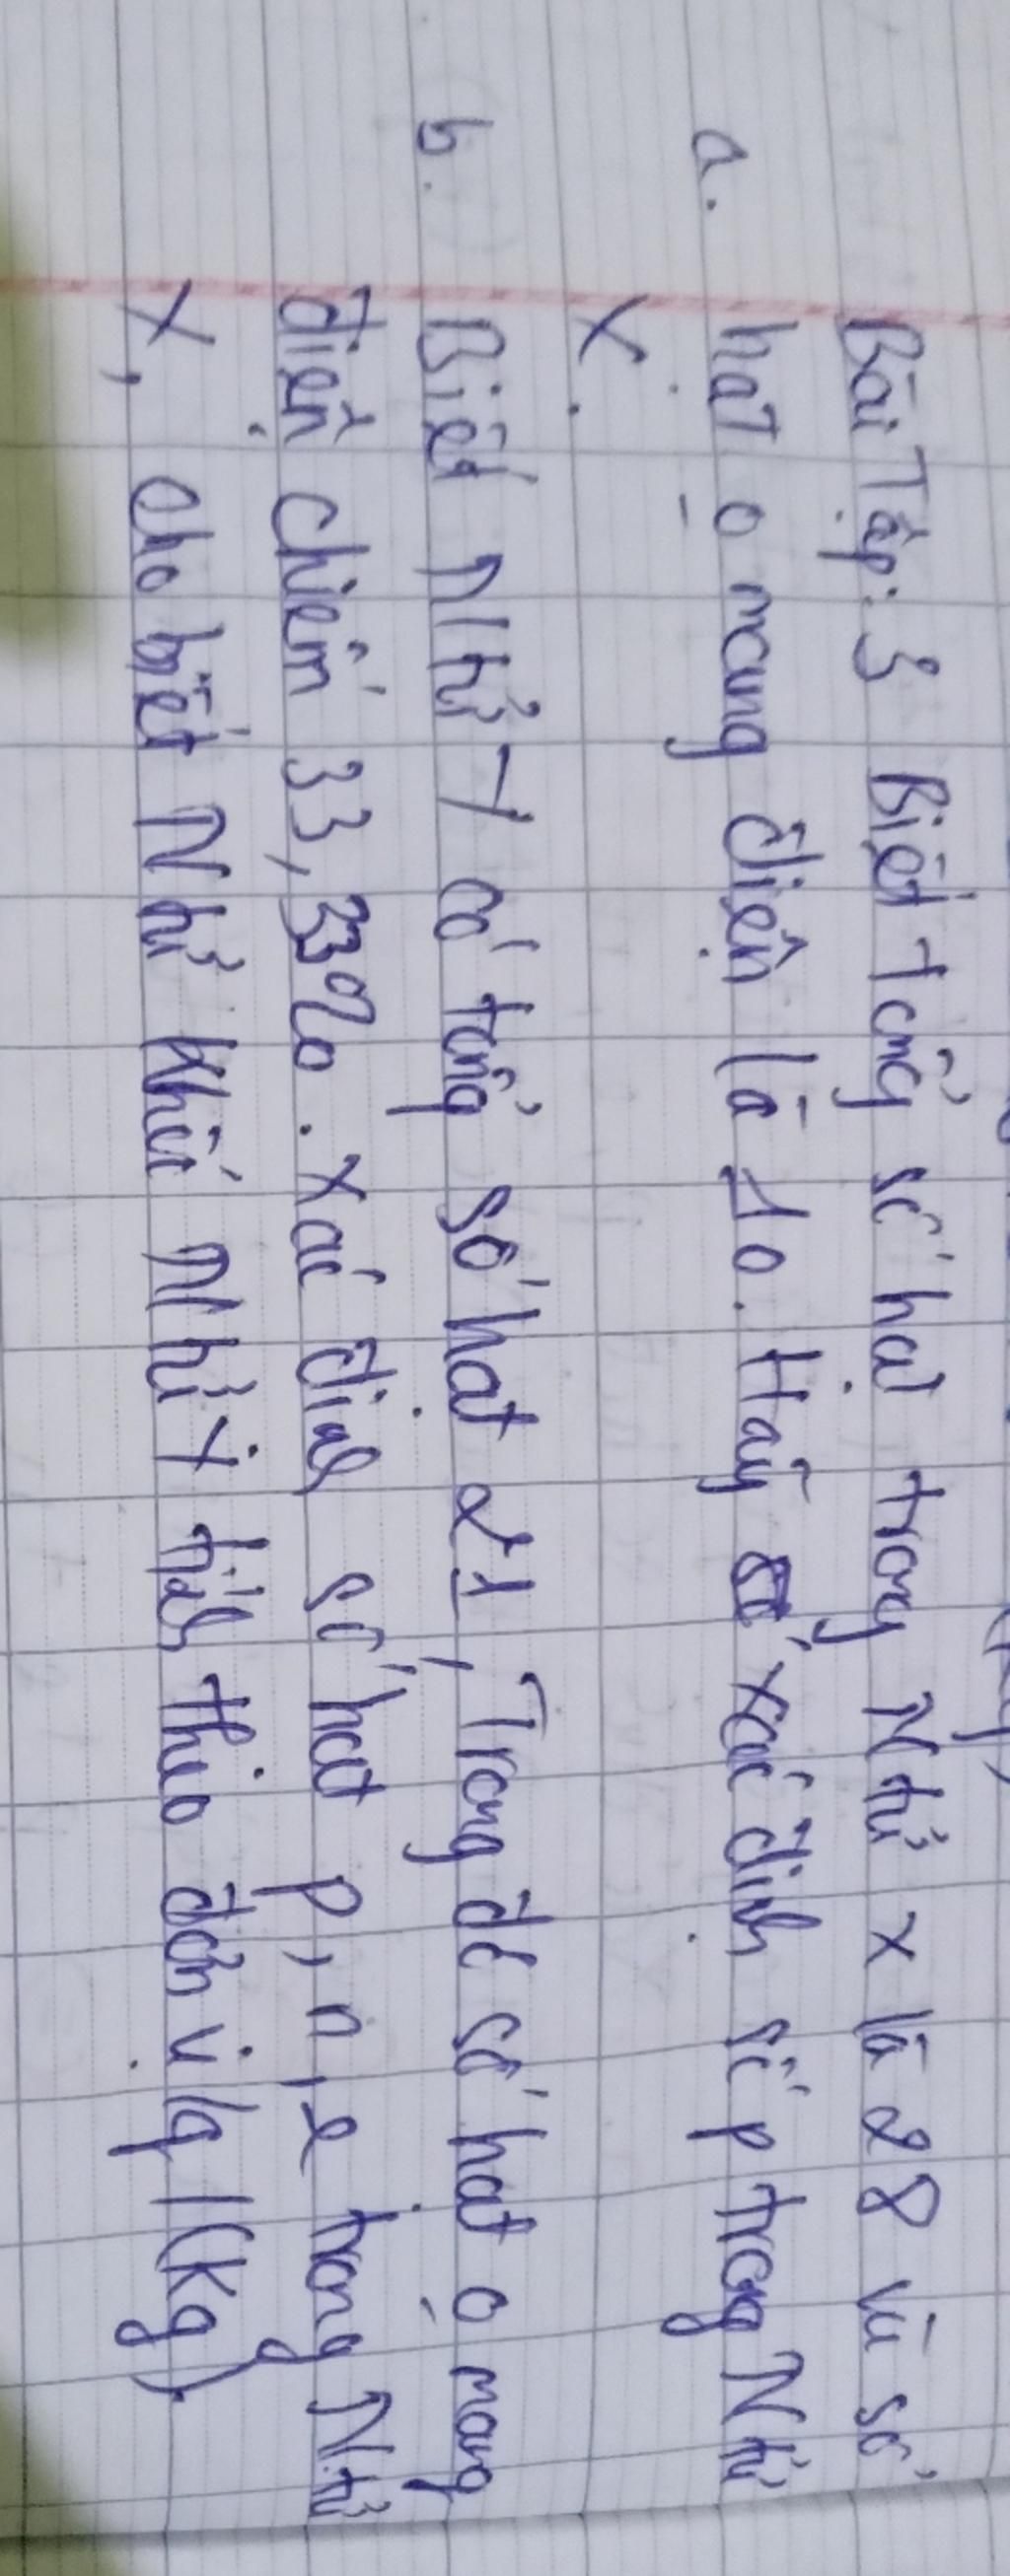 Bài Tập: 3 Biết tổng số hạt trong Ntử x là 28 và số
a. hạt o mang điện là 10. Hãy xác định số p trong Ntử
X.
b. Biết Ntử Y có tổng số hạt 21, Trong đó số hạt o mang
điện chiếm 33,33%. Xác định số hạt p, n, e trong Ntử
Y, cho biết Ntử khối Ntử Y tính theo đơn vị (g) (Kg)